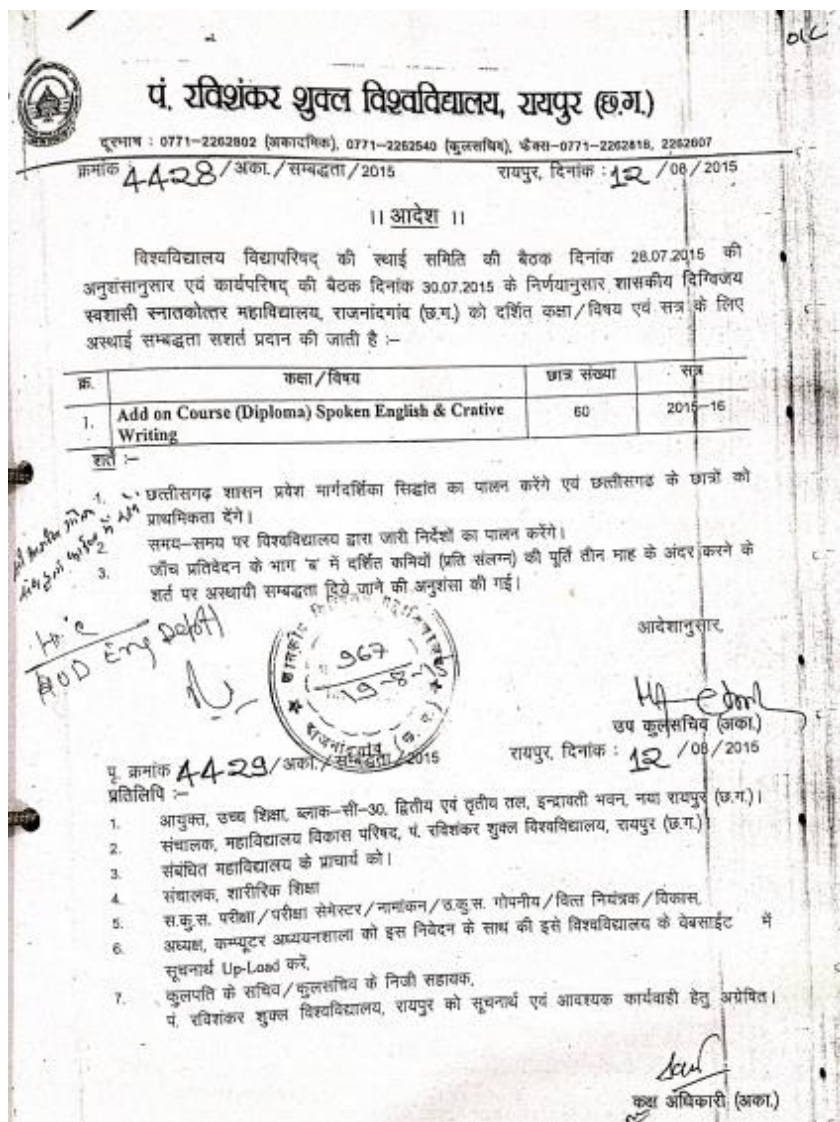 पं. रविशंकर शुक्ल विश्वविद्यालय, रायपुर (छ.ग.)
दूरभाष : 0771-2262802 (अकादमिक), 0771-2262540 (कुलसचिव), फैक्स-0771-2262818, 2262607
क्रमांक 4428/अका./सम्बद्धता/2015 रायपुर, दिनांक : 12/08/2015
।। आदेश ।।
विश्वविद्यालय विद्यापरिषद् की स्थाई समिति की बैठक दिनांक 28.07.2015 की
अनुशंसानुसार एवं कार्यपरिषद् की बैठक दिनांक 30.07.2015 के निर्णयानुसार शासकीय दिग्विजय
स्वशासी स्नातकोत्तर महाविद्यालय, राजनांदगांव (छ.ग.) को दर्शित कक्षा/विषय एवं सत्र के लिए
अस्थाई सम्बद्धता सशर्त प्रदान की जाती है :-
क्र. कक्षा/विषय छात्र संख्या सत्र
1. Add on Course (Diploma) Spoken English & Crative 60 2015-16
Writing
शर्ते :-
1. छत्तीसगढ़ शासन प्रवेश मार्गदर्शिका सिद्धांत का पालन करेंगे एवं छत्तीसगढ़ के छात्रों को
प्राथमिकता देंगे।
2 समय-समय पर विश्वविद्यालय द्वारा जारी निर्देशों का पालन करेंगे।
3. जाँच प्रतिवेदन के भाग 'ब' में दर्शित कमियों (प्रति संलग्न) की पूर्ति तीन माह के अंदर करने के
शर्त पर अस्थायी सम्बद्धता दिये जाने की अनुशंसा की गई।
HOD Eng Deptt
967
19-8-
राजनांदगांव
आदेशानुसार,
उप कुलसचिव (अका.)
रायपुर, दिनांक : 12/08/2015
पृ. क्रमांक 4429/अका./सम्बद्धता/2015
प्रतिलिपि :-
1. आयुक्त, उच्च शिक्षा, ब्लाक-सी-30, द्वितीय एवं तृतीय तल, इन्द्रावती भवन, नया रायपुर (छ.ग.)।
2. संचालक, महाविद्यालय विकास परिषद, पं. रविशंकर शुक्ल विश्वविद्यालय, रायपुर (छ.ग.)
3. संबंधित महाविद्यालय के प्राचार्य को।
4. संचालक, शारीरिक शिक्षा
5. स.कु.स. परीक्षा/परीक्षा सेमेस्टर/नामांकन/उ.कु.स. गोपनीय/वित्त नियंत्रक/विकास,
6. अध्यक्ष, कम्प्यूटर अध्ययनशाला को इस निवेदन के साथ की इसे विश्वविद्यालय के वेबसाईट में
सूचनार्थ Up-Load करें,
7. कुलपति के सचिव/कुलसचिव के निजी सहायक,
पं. रविशंकर शुक्ल विश्वविद्यालय, रायपुर को सूचनार्थ एवं आवश्यक कार्यवाही हेतु अग्रेषित।
कक्ष अधिकारी (अका.)